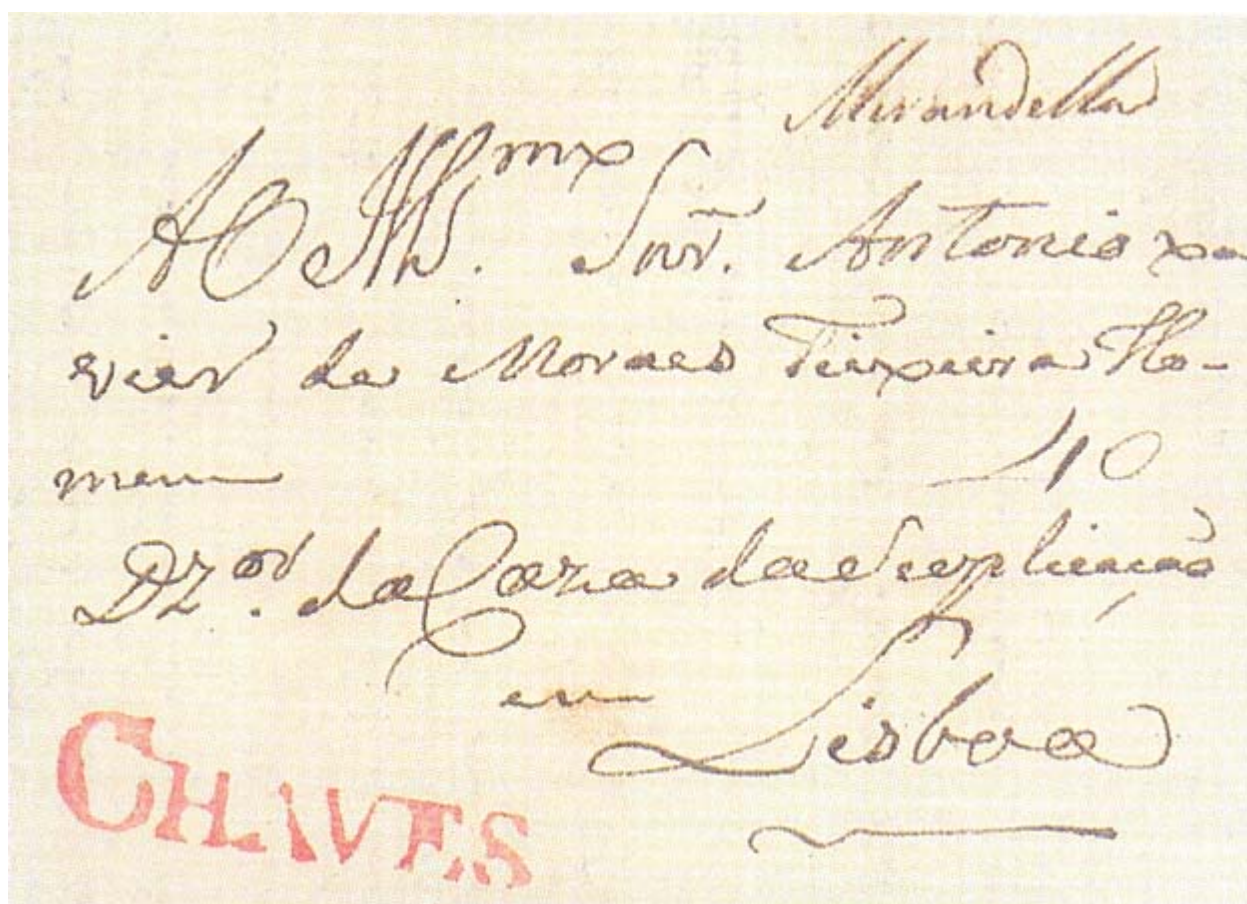 Mirandella
AO Illmo. Snr. Antonio Xa
vier de Moraes Teixeira Ho-
mem
40
Dzor. da Caza da Suplicação
em
Lisboa
CHAVES